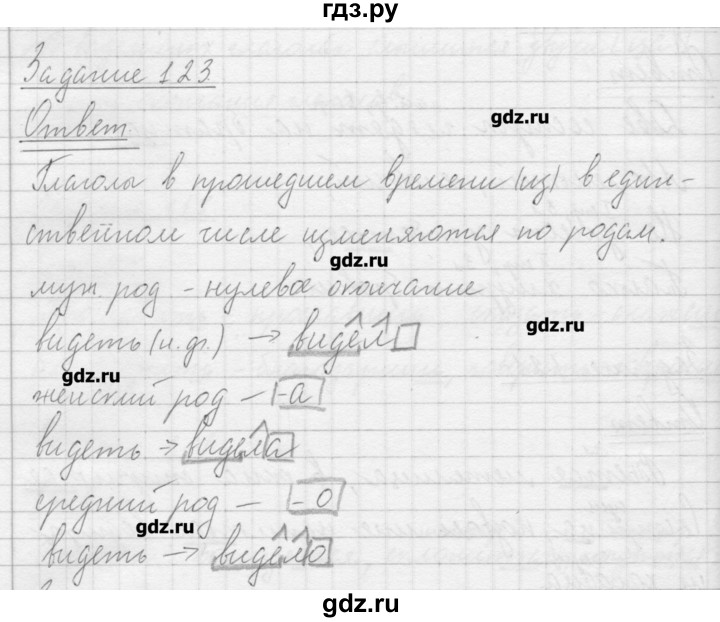 гдз.ру
Задание 123.
Ответ.
gdz.ru
Глаголы в прошедшем времени (из) в един-
ственном числе изменяются по родам.
gdz.ru
муж. род - нулевое окончание
gdz.ru
видеть (н.ф.) → видел
gdz.ru
женский род - -а
видеть → видела
средний род - -о
gdz.ru
видеть → видело
gdz.ru